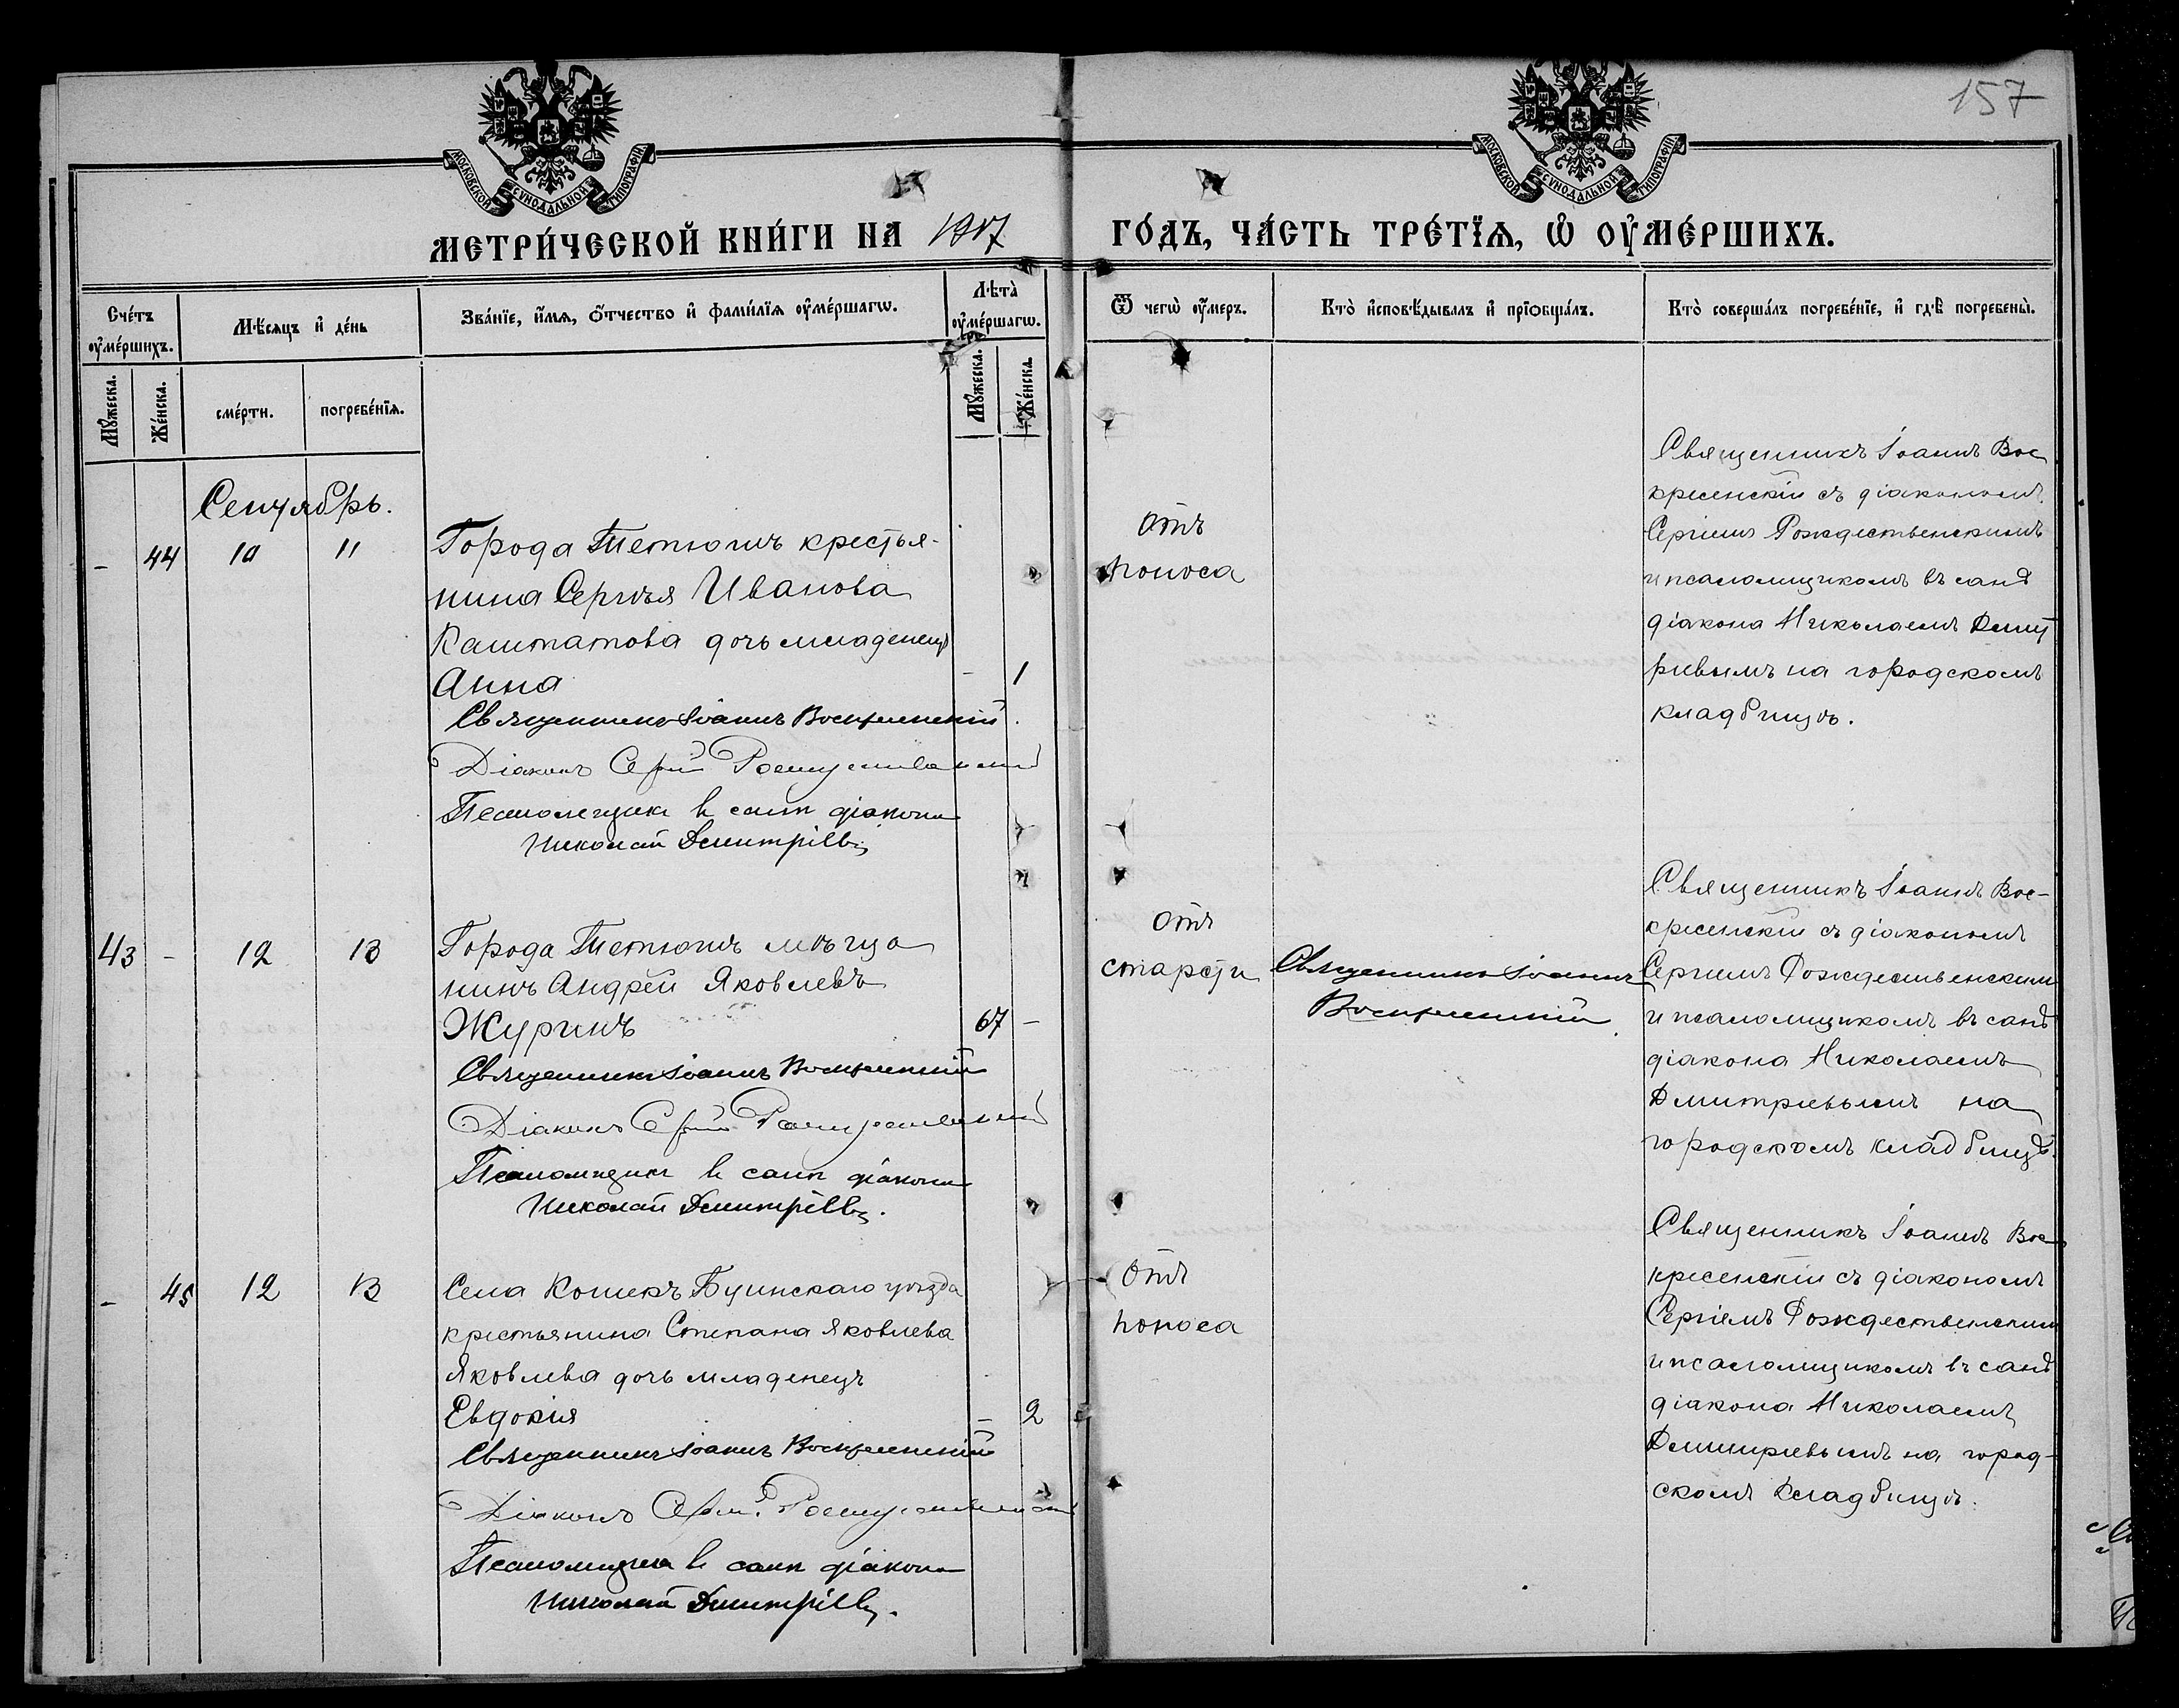 157
МОСКОВСКОЙ СѴНОДАЛЬНОЙ ТИПОГРАФІИ
МОСКОВСКОЙ СѴНОДАЛЬНОЙ ТИПОГРАФІИ
МЕТРИ́ЧЕСКОЙ КНИ́ГИ НА 1917 ГО́ДЪ, ЧА́СТЬ ТРЕ́ТЇѦ, Ѡ҆ ОУ҆МЕ́РШИХЪ.
Сче́тъ оу҆ме́ршихъ.
Мѣ́сяцъ и҆ де́нь
Зва́нїе, и҆́мѧ, ѻ҆́тчество и҆ фами́лїѧ оу҆ме́ршагѡ.
Лѣта̀ оу҆ме́ршагѡ.
Ѿ чегѡ̀ оу҆́меръ.
Кто̀ и҆сповѣ́дывалъ и҆ прїѻбща́лъ.
Кто̀ соверша́лъ погребе́нїе, и҆ гдѣ̀ погребены̀.
Мꙋ́жеска.
Же́нска.
сме́рти.
погребе́нїѧ.
Мꙋ́жеска.
Же́нска.
Сентябрь.
- 44 10 11
Города Тетюшъ крестья-
нина Сергѣя Иванова
Каштатова дочь младенецъ
Анна - 1
Священникъ Іоаннъ Воскресенскій.
Діаконъ Сергій Рождественскій
Псаломщикъ въ санѣ діакона
Николай Димитріевъ
Отъ
поноса
Священникъ Іоаннъ Вос
кресенскій съ діакономъ
Сергіемъ Рождественскимъ
и псаломщикомъ въ санѣ
діакона Николаемъ Димит
ріевымъ на городскомъ
кладбищѣ.
43 - 12 13
Города Тетюшъ мѣща
нинъ Андрей Яковлевъ
Журинъ 67 -
Священникъ Іоаннъ Воскресенскій
Діаконъ Сергій Рождественскій
Псаломщикъ въ санѣ діакона
Николай Димитріевъ.
Отъ
старсти
Священникъ Іоаннъ
Воскресенскій.
Священникъ Іоаннъ Вос-
кресенскій съ діакономъ
Сергіемъ Рождественским
и псаломщикомъ въ санѣ
діакона Николаемъ
Дмитріевымъ на
городскомъ кладбищѣ.
- 45 12 13
Села Кошекъ Буинскаго уѣзда
крестьянина Степана Яковлева
Яковлева дочь младенецъ
Евдокія - 2
Священникъ Іоаннъ Воскресенскій
Діаконъ Сергій Рождественскій
Псаломщикъ въ санѣ діакона
Николай Димитріевъ.
Отъ
поноса
Священникъ Іоаннъ Вос
кресенскій съ діакономъ
Сергіемъ Рождественским
и псаломщикомъ въ санѣ
діакона Николаемъ
Димитріевымъ на город-
скомъ кладбищѣ.